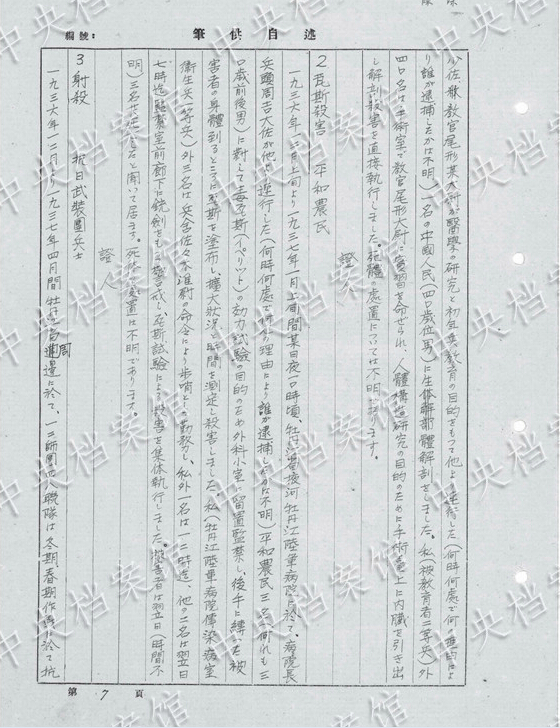 筆供自述
編號：
少佐散教官尾形某大尉が醫學の研究と初年兵教育の目的をもつて他より連行した（何時何處で何の理由によ
り誰が逮捕したかは不明）一名の中國人民（四〇歳位男）に生体解剖をしました。私被教育者（二等兵）外
四〇名は手術室で教官尾形大尉に実習を命ぜられ、人體構造研究の目的のために手術臺上に内臓を引き出
し解剖殺害を直接執行しました。死體の處置については不明であります。
證人
2 瓦斯殺害 平和農民
一九三六年一二月上旬より一九三七年一月上旬間某日夜一〇時頃、牡丹江省掖河牡丹江陸軍病院に於て、病院長
兵頭周吉大佐が他より連行した（何時何處で何の理由により誰が逮捕したかは不明）平和農民三名（何れも三
〇歳前後男）に對して毒瓦斯（イペリット）の効力試験の目的のため外科小室に留置監禁し、後手に縛いた被
害者の身體到るところに瓦斯を塗布し、擴大状況と時間を測定し殺害しました。私（牡丹江陸軍病院傳染病室
衛生兵一等兵）外三名は兵舎佐々木准尉の命令により歩哨として勤務し、私外一名は一二時迄、他の二名は翌日
七時迄監禁室前廊下で銃劍をもつて警戒し瓦斯試験による殺害を集体執行しました。被害者は翌日（時間不
明）三名共死亡したと聞いて居ます。死体の處置は不明であります。
證人
3 射殺 抗日武裝團兵士
一九三六年一二月より一九三七年四月間牡丹江省周邊に於て、一二師團四八聯隊は冬期春期作戰に於て抗
第 7 頁
中央档案馆